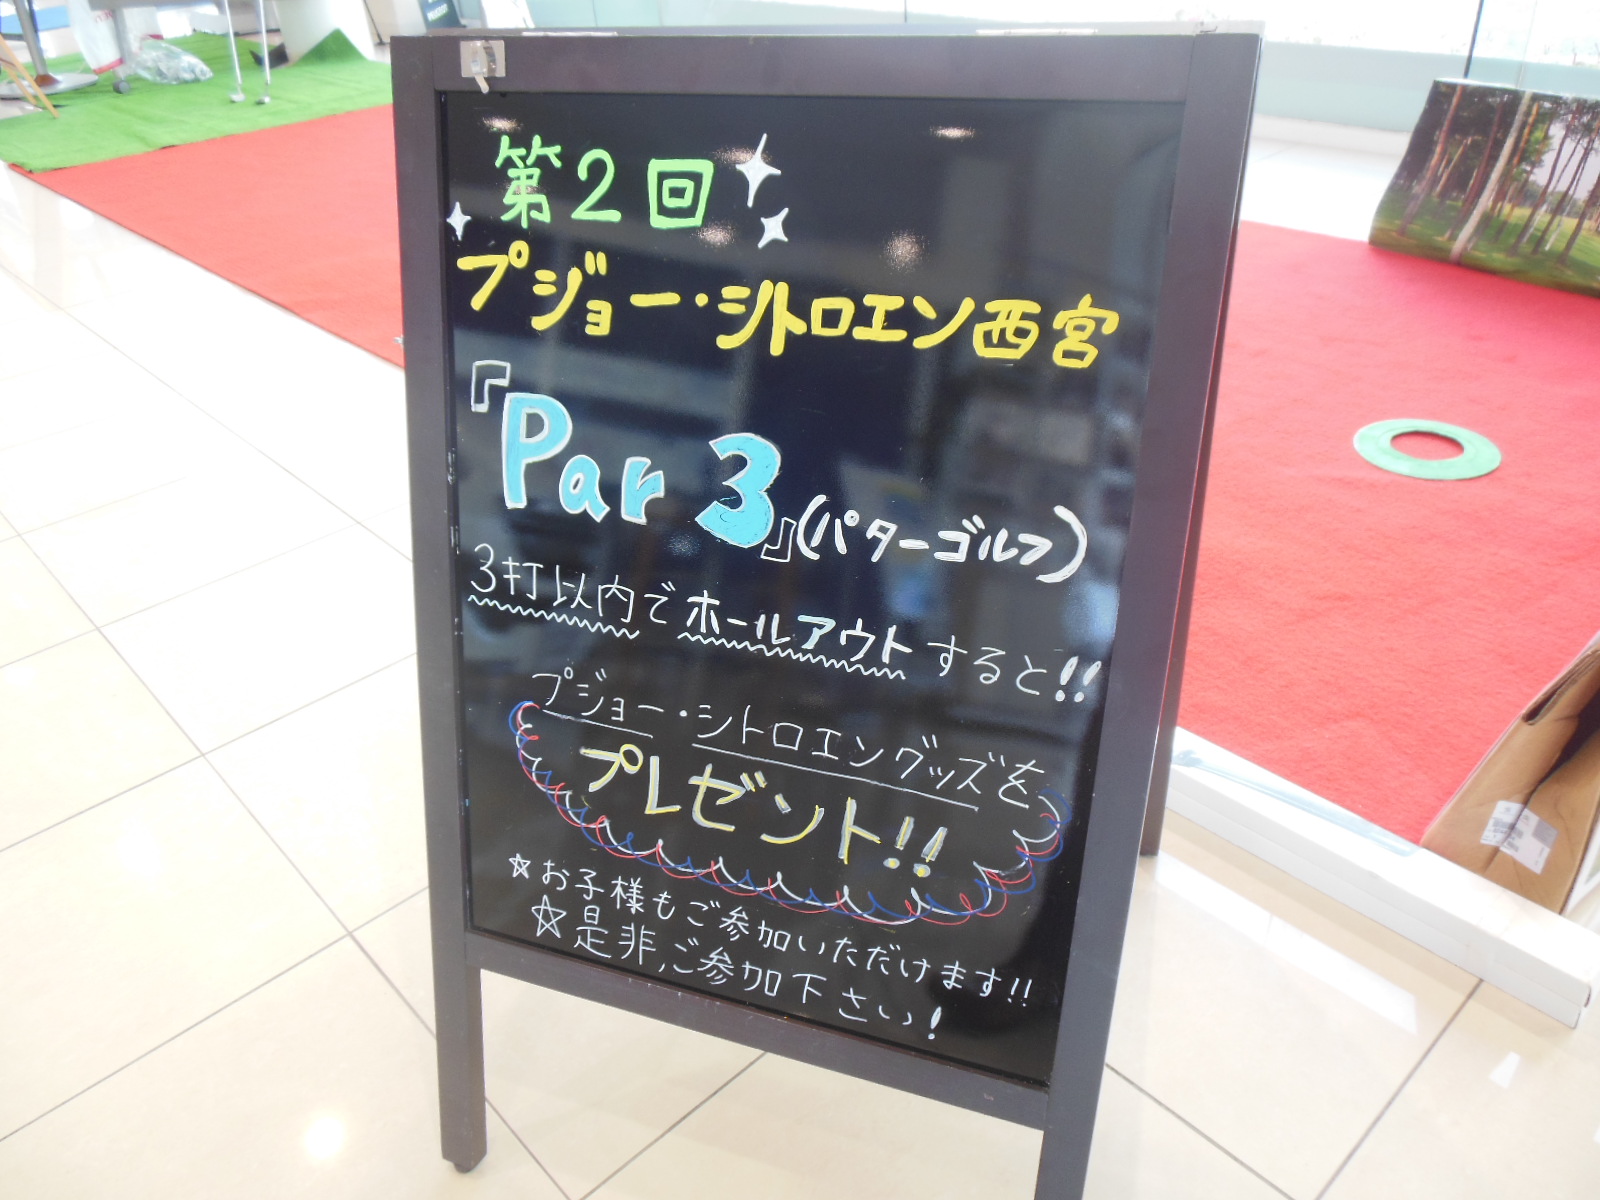 第2回
プジョー・シトロエン西宮
『Par 3』(パターゴルフ)
3打以内でホールアウトすると!!
プジョー・シトロエングッズを
プレゼント!!
☆お子様もご参加いただけます!!
☆是非、ご参加下さい!